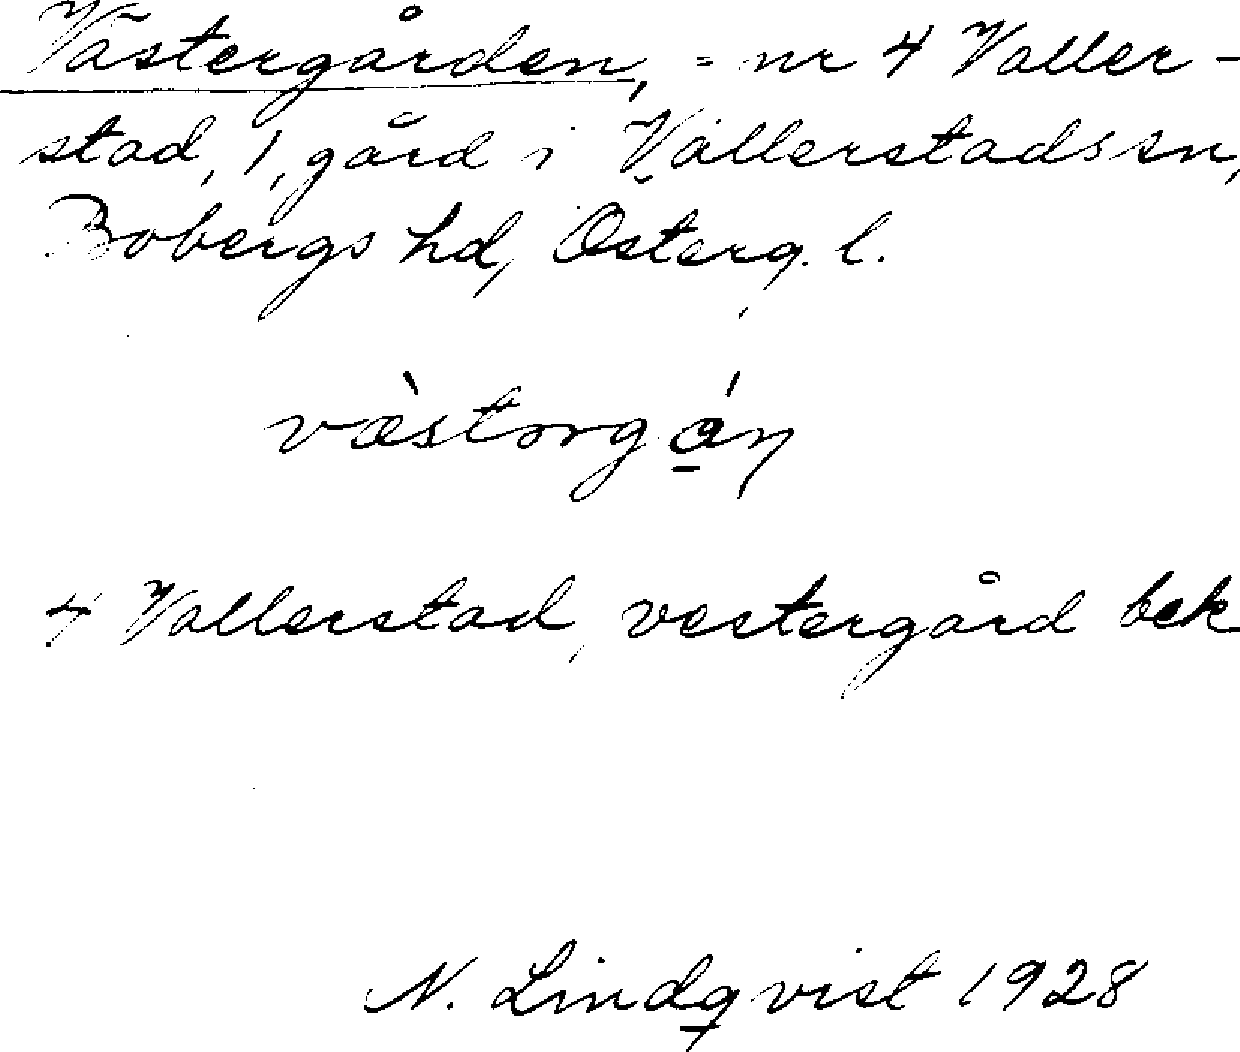 Västergården, = nr 4 Valler-
stad, 1, gård i Vallerstads sn,
Bobergs hd, Österg. l.
væ̀storgán
4 Vallerstad, vestergård bek
N. Lindqvist 1928